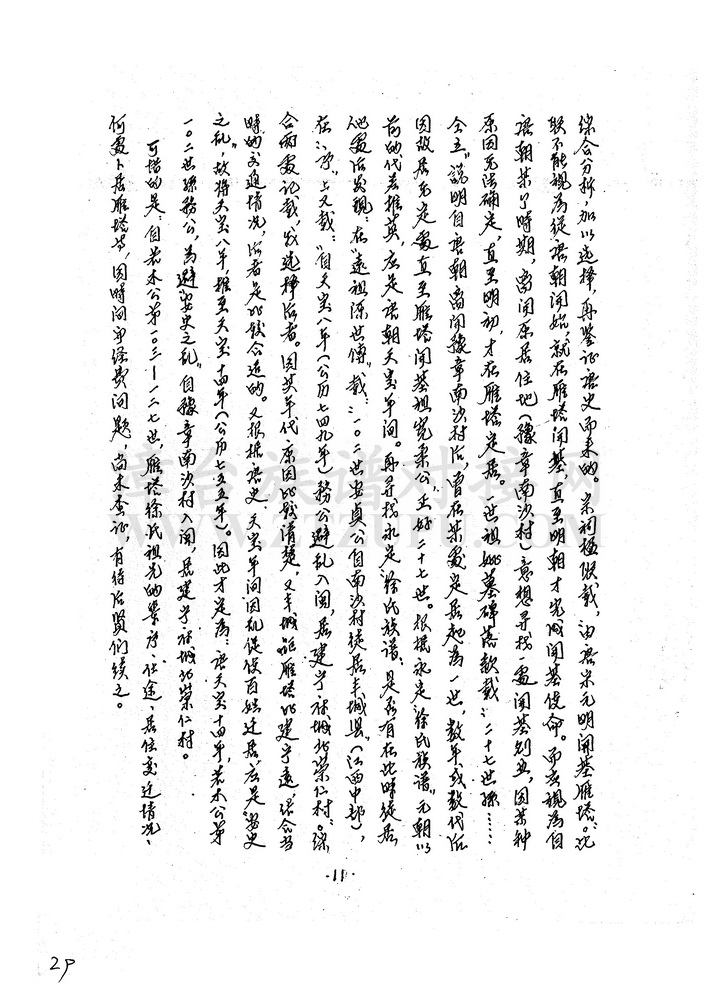 综合分析,加以选择,再鉴证语史而来的。宗祠楹联载,"由唐宋元明开基雁塔"。此
联不能视为从唐朝开始就在雁塔开基,直至明朝才完成开基使命。而应视为自
唐朝某了时期,离开原居住地(豫章南沙村)意想寻找一处开基创业,因某种
原因无法确定,直至明初,才在雁塔定居。"世祖妣墓碑落款载:二十七世孙……
仝立"说明自唐朝离开豫章南沙村后,曾在某处定居起为一世,数年或数代后
因故居无定处直至雁塔开基祖完柔公正好二十七世。根据永定"徐氏族谱"元朝以
前的代差推算,应是唐朝天宝年间。再寻找永定"徐氏族谱",是否有在此时徙居
他处后发现:在"远祖陈世传"载:一〇二世安贞公自南沙村徙居丰城县"(江西中部),
在"序"上又载:"自天宝八年(公历七四九年)务公避乱入闽,居建宁府城北荣仁村"。综
合两处记载,我选择后者。因其年代原因比较清楚,又丰城距雁塔比建宁远,综合当
时的交通情况,后者是比较合适的。又根据唐史,天宝年间因乱促使百姓迁居,应是"安史
之乱",故将天宝八年,推至天宝十四年(公历七五五年)。因此才定为:"唐天宝十四年,若木公第
一〇二世孙务公,为避"安史之乱"自豫章南沙村入闽,居建宁府城北荣仁村。
可惜的是:自若木公第一〇三—一二七世,雁塔徐氏祖先的业序、仕途、居住变迁情况、
何处卜居雁塔等,因时间和经费问题,尚未查证,有待后贤们续之。
·11·
章台族谱对接网
WWW.ZTZUPU.COM
29